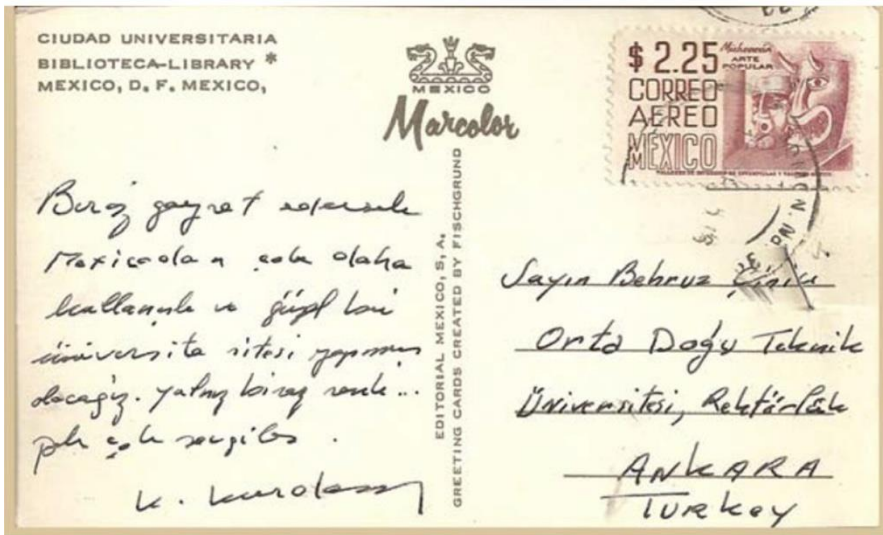 CIUDAD UNIVERSITARIA
BIBLIOTECA-LIBRARY *
MEXICO, D. F. MEXICO,
MEXICO
Marcolor
$ 2.25
Michoacán
ARTE
POPULAR
CORREO
AEREO
MÉXICO
Biraz gayret edersek
Mexicodan çok daha
kullanışlı ve güzel bir
üniversite sitesi yapmış
olacağız. Yalnız biraz renk...
pek çok sevgiler.
K. Kurdaş
EDITORIAL MEXICO, S. A.
GREETING CARDS CREATED BY FISCHGRUND
Sayın Behruz Çinici
Orta Doğu Teknik
Üniversitesi, Rektörlük
ANKARA
TURKEY